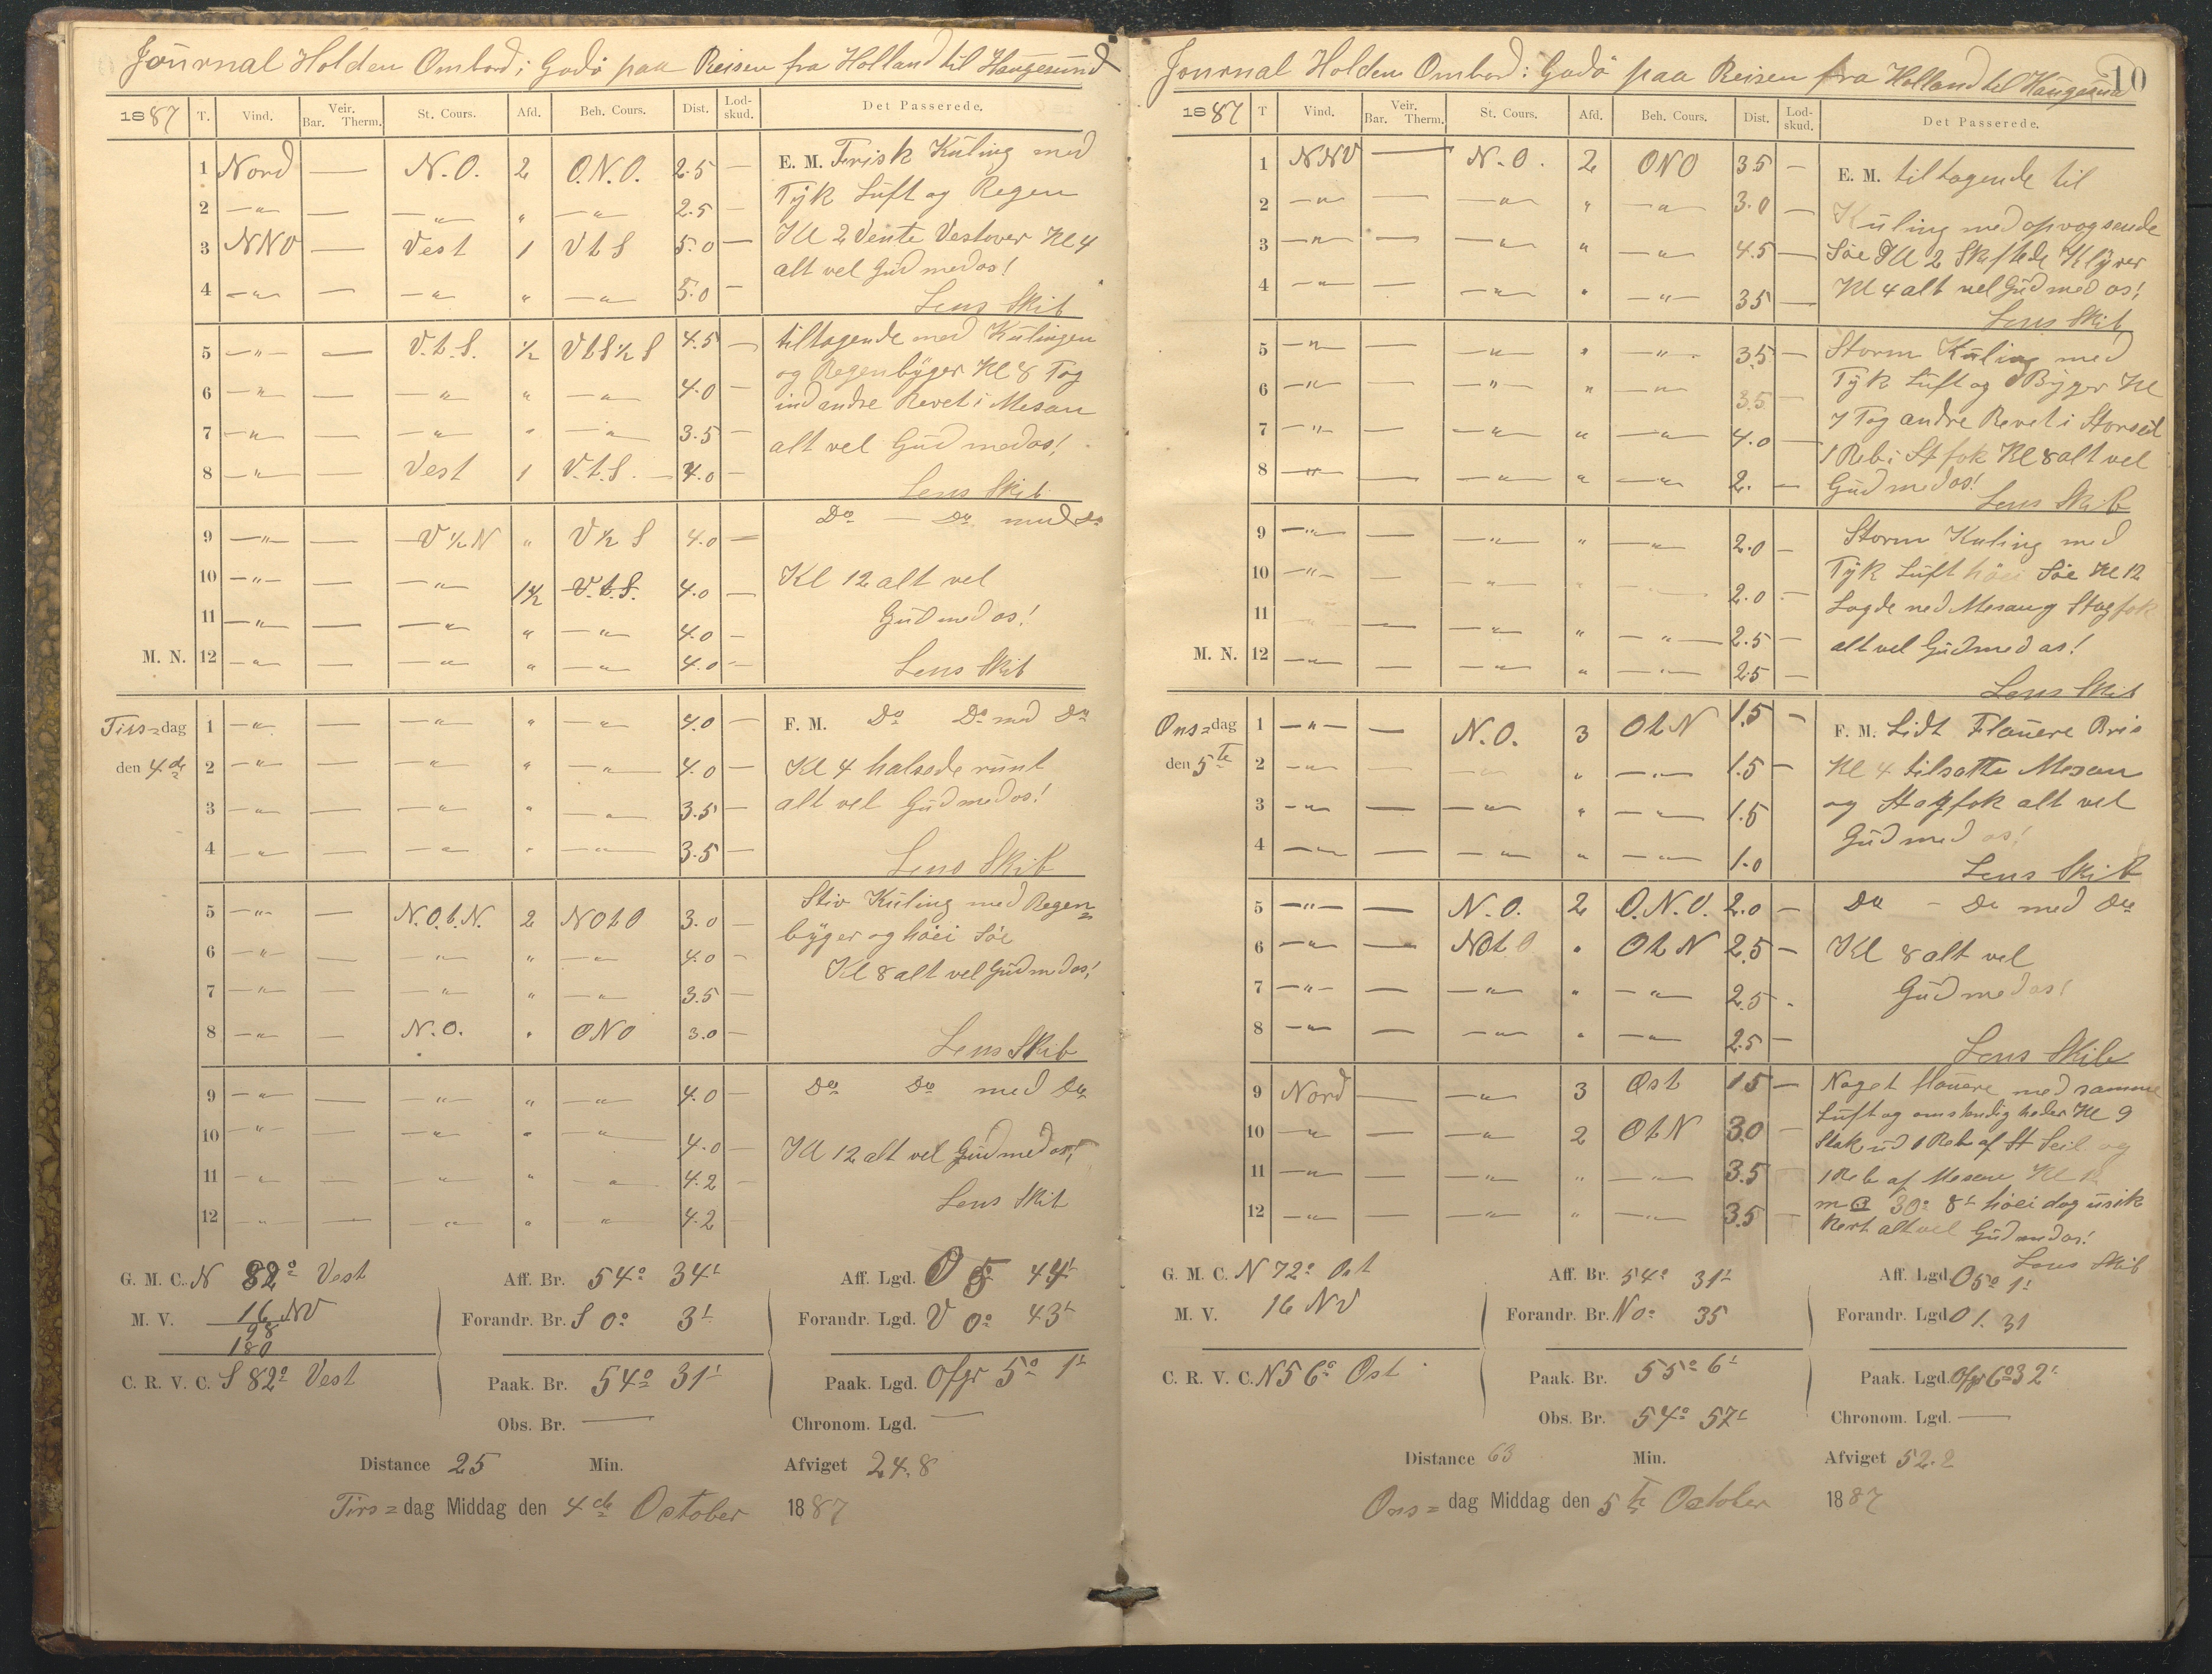 Journal Holden Ombord i Godö paa Reisen fra Holland til Haugesund
1887 T. Vind. Veir. Bar. Therm. St. Cours. Afd. Beh. Cours. Dist. Lod-skud. Det Passerede.
1 Nord — N.O. 2 O.N.O. 2.5 — E. M. Frisk Kuling med
2 —"— — —"— " —"— 2.5 — Tyk Luft og Regen
3 NNV — Vest 1 V t S 5.0 — Kl 2 Vente Vestover Kl 4
alt vel Gud med os!
4 —"— — —"— " —"— 5.0 —
Lens Skib
5 —"— — V.t.S. ½ V t S ½ S 4.5 — tiltagende med Kulingen
og Regenbyger Kl 8 Tog
6 —"— — —"— " —"— 4.0 — ind andre Revet i Mesan
7 —"— — —"— " —"— 3.5 — alt vel Gud med os!
8 —"— — Vest 1 V.t.S. 4.0 —
Lens Skib
Do — Do med Do
9 —"— — V ½ N " V ½ S 4.0 —
10 —"— — —"— 1½ V.t.S. 4.0 — Kl 12 alt vel
11 —"— — —"— " —"— 4.0 — Gud med os!
M. N. 12 —"— — —"— " —"— 4.0 — Lens Skib
Tirs=dag 1 —"— — —"— " —"— 4.0 — F. M. Do Do med Do
den 4de 2 —"— — —"— " —"— 4.0 — Kl 4 halsede runt
3 —"— — —"— " —"— 3.5 — alt vel Gud med os!
4 —"— — —"— " —"— 3.5 —
Lens Skib
Stiv Kuling med Regen=
5 —"— — N.O.t.N. 2 NOtO 3.0 — byger og höei Söe
6 —"— — —"— " —"— 4.0 — Kl 8 alt vel Gud med os!
7 —"— — —"— " —"— 3.5 —
8 —"— — N.O. " ONO 3.0 —
Lens Skib
9 —"— — —"— " —"— 4.0 — Do Do med Do
10 —"— — —"— " —"— 4.0 — Kl 12 alt vel Gud med os!
11 —"— — —"— " —"— 4.2 —
12 —"— — —"— " —"— 4.2 Lens Skib
G. M. C. N 82° Vest Aff. Br. 54° 34' Aff. Lgd. O 5 44'
M. V. 16 NV Forandr. Br. S 0° 3' Forandr. Lgd. V 0° 43'
98
180
C. R. V. C. S 82° Vest Paak. Br. 54° 31' Paak. Lgd. Ofgr 5° 1'
Obs. Br. — Chronom. Lgd. —
Distance 25 Min. Afviget 24.8
Tirs=dag Middag den 4de October 1887
10
Journal Holden Ombord i Godö paa Reisen fra Holland til Haugesund
1887 T Vind. Veir. Bar. Therm. St. Cours. Afd. Beh. Cours. Dist. Lod-skud. Det Passerede.
1 NNV — N.O. 2 ONO 3.5 — E. M. tiltagende til
2 —"— — —"— " —"— 3.0 — Kuling med opvogsende
3 —"— — —"— " —"— 4.5 — Söe Kl 2 Skiftede Klyver
4 —"— — —"— " —"— 3.5 — Kl 4 alt vel Gud med os!
Lens Skib
5 —"— — —"— " —"— 3.5 — Storm Kuling med
6 —"— — —"— " —"— 3.5 — Tyk Luft og Byger Kl
7 —"— — —"— " —"— 4.0 — 7 Tog andre Revet i Storseil
1 Reb i St fok Kl 8 alt vel
8 —"— — —"— " —"— 2. — Gud med os!
Lens Skib
9 —"— — —"— " —"— 2.0 — Storm Kuling med
10 —"— — —"— " —"— 2.0 — Tyk Luft höei Söe Kl 12
11 — —"— " —"— 2.5 — Lagde ned Mesan og Stagfok
M. N. 12 —"— — —"— " —"— 2.5 — alt vel Gud med os!
Lens Skib
Ons=dag 1 —"— — N.O. 3 O t N 1.5 — F. M. Lidt Flauere Bris
den 5te 2 —"— — —"— " —"— 1.5 — Kl 4 tilsatte Mesan
3 —"— — —"— " —"— 1.5 og Stagfok alt vel
4 —"— — —"— " —"— 1.0 Gud med os!
Lens Skib
5 —"— — N.O. 2 O.N.O. 2.0 — Do — Do med Do
6 —"— — NOtO " O t N 2.5 — Kl 8 alt vel
7 —"— — —"— " —"— 2.5 — Gud med os!
8 —"— — —"— " —"— 2.5 —
Lens Skib
9 Nord — —"— 3 Ost 1.5 — Noget flauere med samme
Luft og omstendigheder Kl 9
10 —"— — —"— 2 O t N 3.0 — Stak ud 1 Reb af St Seil og
11 —"— — —"— " —"— 3.5 — 1 Reb af Mesan Kl 12
12 —"— — —"— " —"— 3.5 — 30° 8' höei dog usik
kert alt vel Gud med os!
Lens Skib
G. M. C. N 72° Ost Aff. Br. 54° 31' Aff. Lgd. O 5° 1'
M. V. 16 NV Forandr. Br. N 0° 35 Forandr. Lgd O 1. 31
C. R. V. C. N 56° Ost Paak. Br. 55° 6' Paak. Lgd. Ofgr 6° 32'
Obs. Br. 54° 57' Chronom. Lgd. —
Distance 63 Min. Afviget 52.2
Ons=dag Middag den 5te October 1887